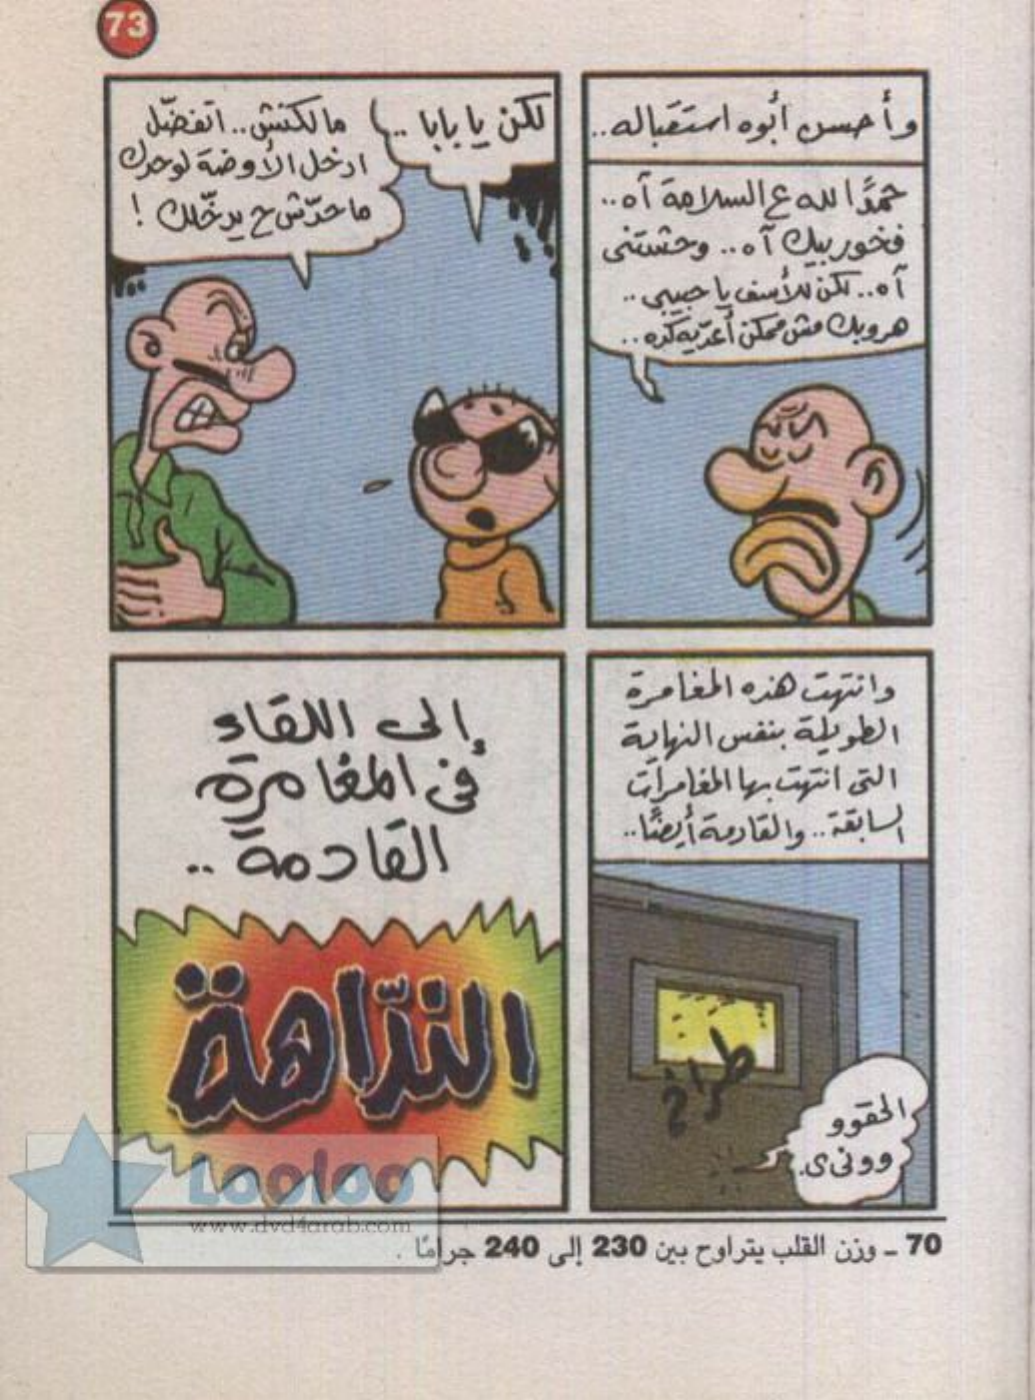 73
وأحسن أبوه استقباله..
حمدًا لله ع السلامة آه..
فخور بيك آه.. وحشتنى
آه.. لكن للأسف يا حبيبى..
هروبك مش ممكن أعدّيه كده..
لكن يا بابا..
مالكنش.. اتفضّل
ادخل الأوضة لوحدك
ماحدّش ح يدخّلك!
وانتهت هذه المغامرة
الطويلة بنفس النهاية
التى انتهت بها المغامرات
السابقة.. والقادمة أيضًا..
طراخ
الحقوو
وونى ى.
إلى اللقاء
فى المغامرة
القادمة..
الندّاهة
Looloo
www.dvd4arab.com
70 ـ وزن القلب يتراوح بين 230 إلى 240 جرامًا .